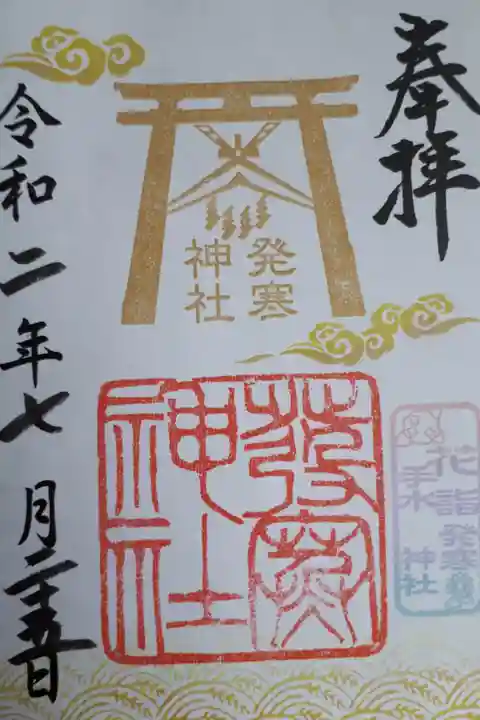 奉拝
発寒
神社
發寒
神社
花詣
手水
発寒
神社
令和二年七月二十五日